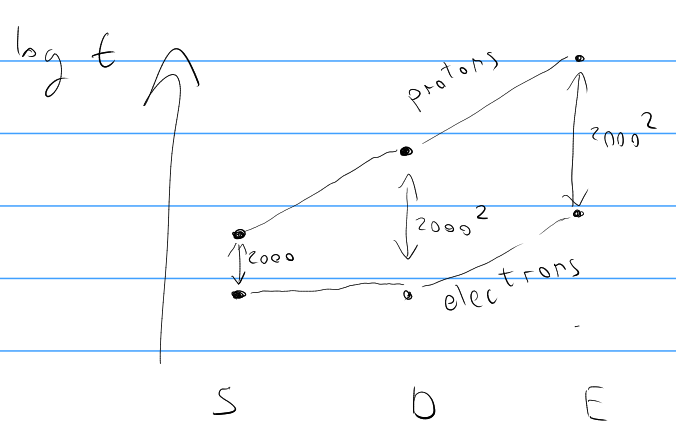 log t
protons
2000²
2000²
2000
electrons
S D E